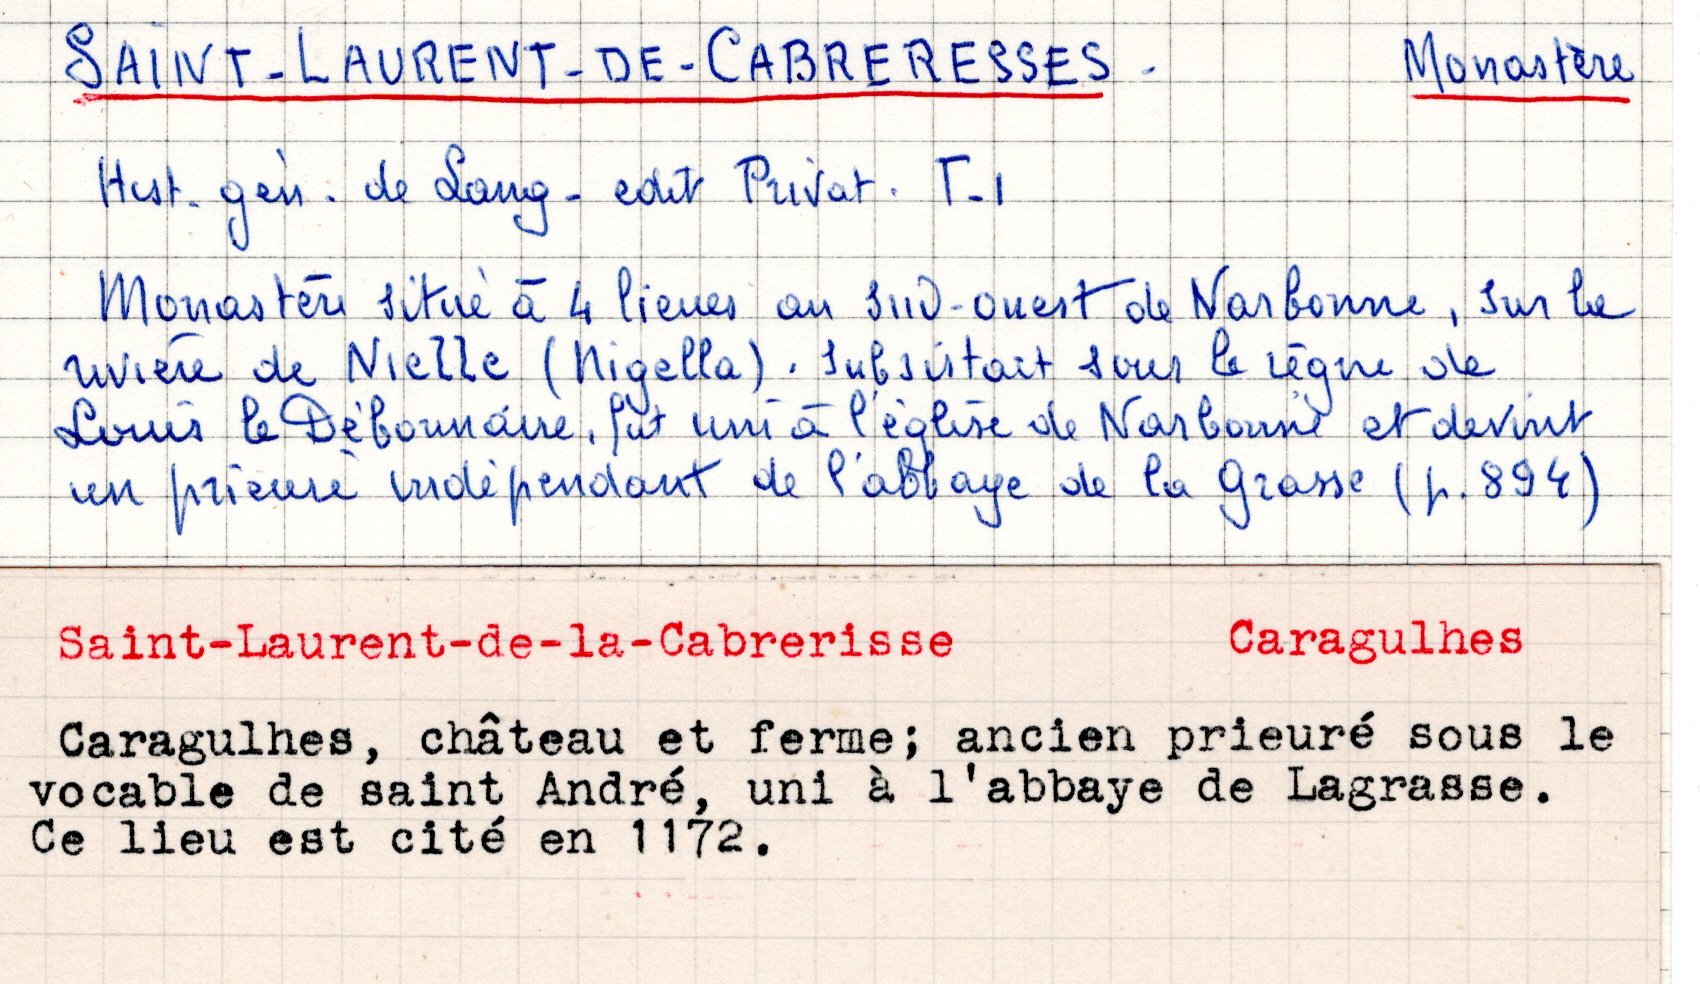 SAINT-LAURENT-DE-CABRERESSES - Monastère
Hist. gén. de Lang - edit Privat. T-1
Monastère situé à 4 lieues au sud-ouest de Narbonne, sur la
rivière de Nielle (Nigella). Subsistait sous le règne de
Louis le Débonnaire, fut uni à l'église de Narbonne et devint
un prieuré indépendant de l'abbaye de la Grasse (p. 894)
Saint-Laurent-de-la-Cabrerisse Caragulhes
Caragulhes, château et ferme; ancien prieuré sous le
vocable de saint André, uni à l'abbaye de Lagrasse.
Ce lieu est cité en 1172.